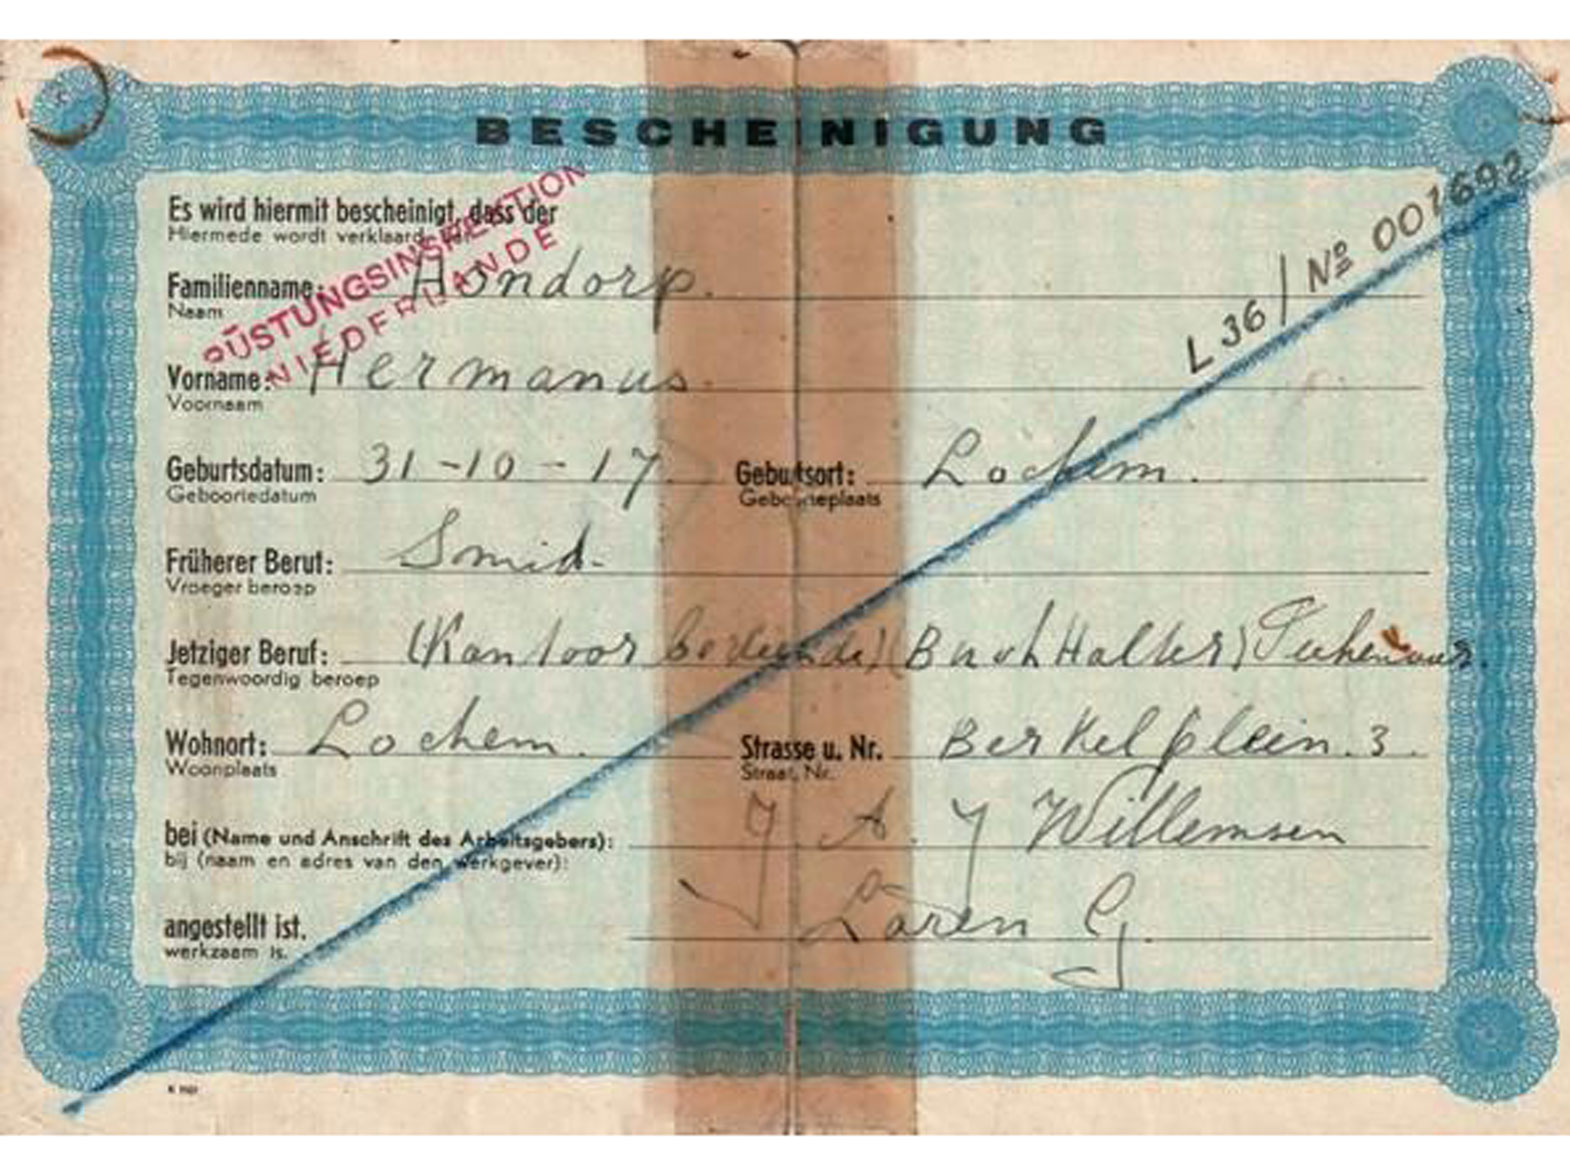 BESCHEINIGUNG
RÜSTUNGSINSPEKTION
NIEDERLANDE
L 36 / Nº 001692
Es wird hiermit bescheinigt, dass der
Hiermede wordt verklaard
Familienname: Hondorp.
Naam
Vorname: Hermanus.
Voornaam
Geburtsdatum: 31-10-17. Geburtsort: Lochem.
Geboortedatum Geboorteplaats
Früherer Beruf: Smid.
Vroeger beroep
Jetziger Beruf: (Kantoor bediende) (Buch Halter)
Tegenwoordig beroep
Wohnort: Lochem. Strasse u. Nr. Berkelplein. 3.
Woonplaats Straat, Nr.
bei (Name und Anschrift des Arbeitsgebers): J. A. J Willemsen
bij (naam en adres van den werkgever):
angestellt ist. Laren G.
werkzaam is.